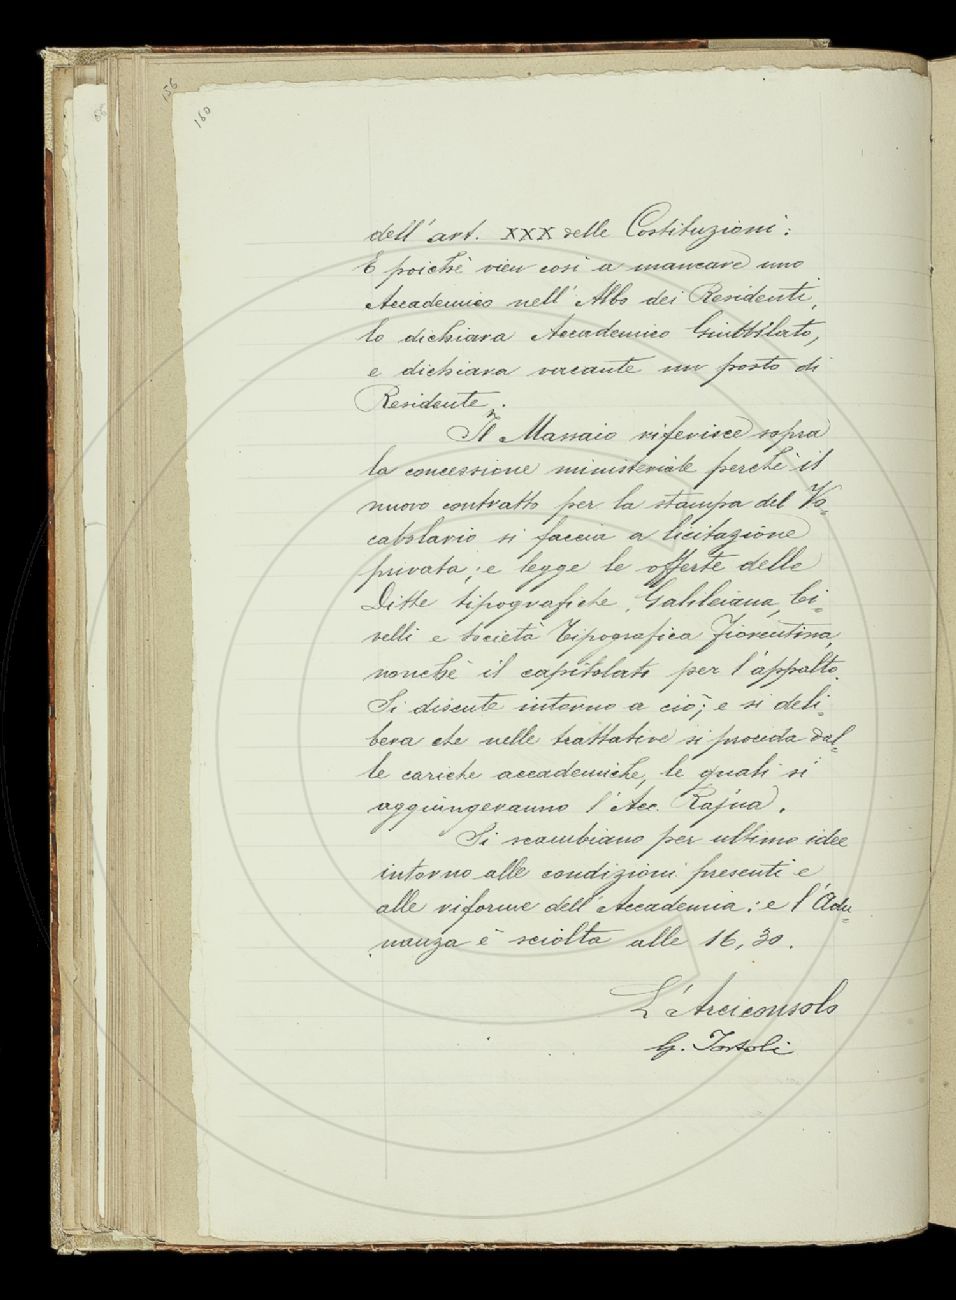 156
160
dell'art. XXX delle Costituzioni:
E poichè vien così a mancare uno
Accademico nell'Albo dei Residenti,
lo dichiara Accademico Giubbilato,
e dichiara vacante un posto di
Residente.
Il Massaio riferisce sopra
la concessione ministeriale perchè il
nuovo contratto per la stampa del Vo=
cabolario si faccia a licitazione
privata; e legge le offerte delle
Ditte tipografiche, Galileiana, Ci=
velli e Società Tipografica Fiorentina,
nonchè il capitolato per l'appalto.
Si discute intorno a ciò; e si deli=
bera che nelle trattative si proceda dal=
le cariche accademiche, le quali si
aggiungeranno l'Acc. Rajna.
Si scambiano per ultimo idee
intorno alle condizioni presenti e
alle riforme dell'Accademia: e l'Adu=
nanza è sciolta alle 16,30.
L'Arciconsolo
G. Tortoli